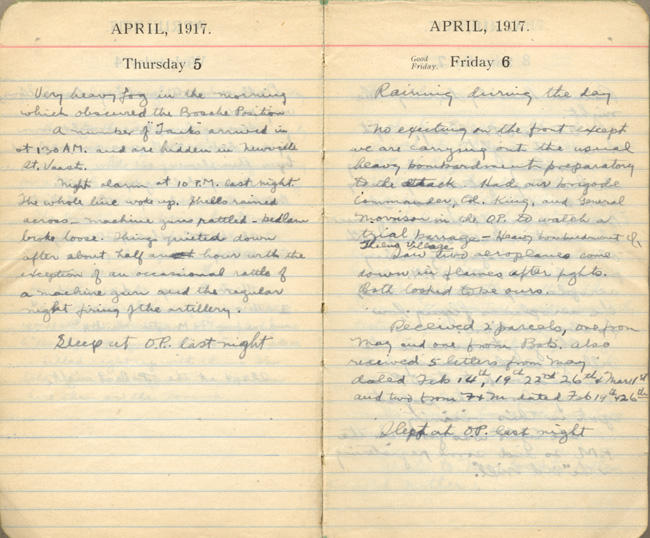 APRIL, 1917.
Thursday 5
Very heavy fog in the morning
which obscured the Bosche Position
A number of "Tanks" arrived in
at 1.30 A.M. and are hidden in Neuville
St. Vaast.
Night alarm at 10 P.M. last night.
The whole line woke up. Shells rained
across - machine guns rattled - bedlam
broke loose. Things quieted down
after about half an hour with the
exception of an occasional rattle of
a machine gun and the regular
night firing of the artillery.
Sleep at O.P. last night
APRIL, 1917.
Good Friday. Friday 6
Raining during the day
No exciting on the front except
we are carrying out the usual
heavy bombardment preparatory
to the attack. Had our brigade
Commander, Col. King, and General
Morrison in the O.P. to watch a
trial barrage - Heavy bombardment of
Thelus Village
Saw two aeroplanes come
down in flames after fights.
Both looked to be ours.
Received 2 parcels, one from
May and one from Bob. also
received 5 letters from May
dated Feb 14th, 19th 22nd 26th & Mar 1st
and two from F & M dated Feb 19th & 26th
Slept at O.P. last night